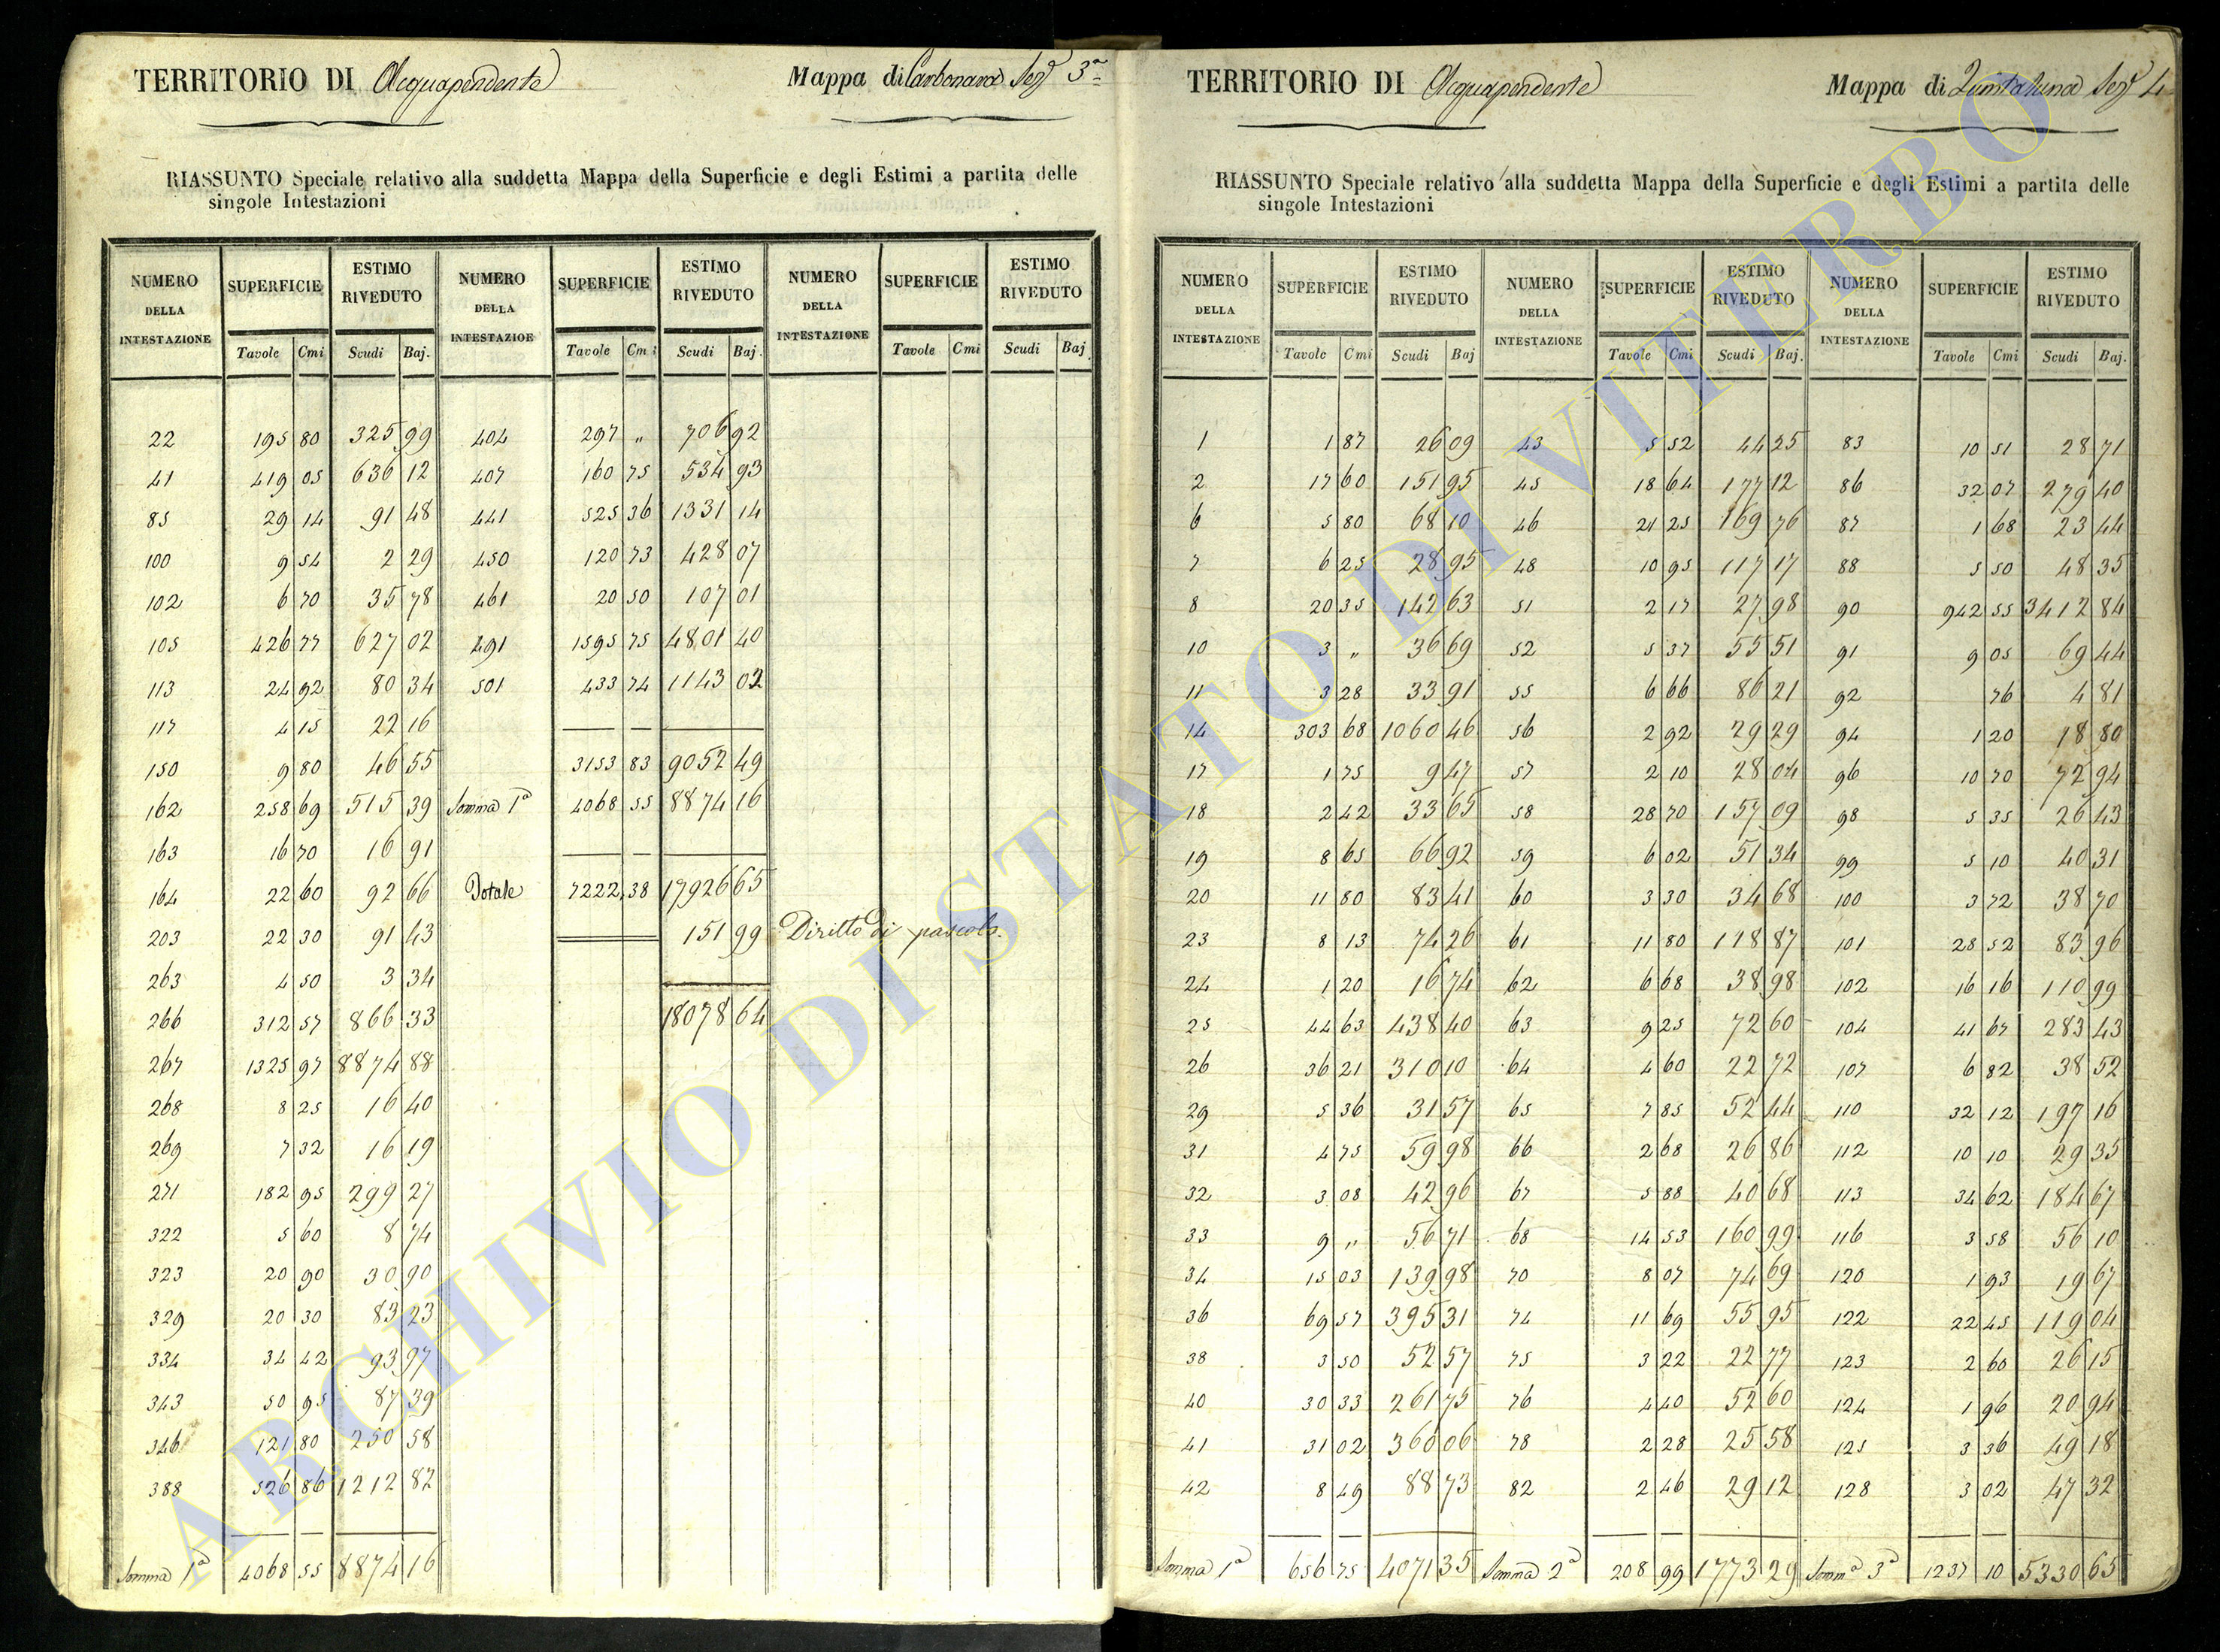 TERRITORIO DI Acquapendente
Mappa di Carbonara Sez.e 3a
RIASSUNTO Speciale relativo alla suddetta Mappa della Superficie e degli Estimi a partita delle
singole Intestazioni
NUMERO DELLA INTESTAZIONE SUPERFICIE ESTIMO RIVEDUTO NUMERO DELLA INTESTAZIOE SUPERFICIE ESTIMO RIVEDUTO NUMERO DELLA INTESTAZIONE SUPERFICIE ESTIMO RIVEDUTO
Tavole Cmi Scudi Baj. Tavole Cmi Scudi Baj. Tavole Cmi Scudi Baj.
22 195 80 325 99 404 297 „ 706 92
41 419 05 636 12 407 160 75 534 93
85 29 14 91 48 441 525 36 1331 14
100 9 54 2 29 450 120 73 428 07
102 6 70 35 78 461 20 50 107 01
105 426 77 627 02 491 1595 75 4801 40
113 24 92 80 34 501 433 74 1143 02
117 4 15 22 16
150 9 80 46 55 3153 83 9052 49
162 258 69 515 39 Somma 1a 4068 55 8874 16
163 16 70 16 91
164 22 60 92 66 Totale 7222 38 17926 65
203 22 30 91 43 151 99 Diritto di pascolo.
263 4 50 3 34
266 312 57 866 33 18078 64
267 1325 97 88 74 88
268 8 25 16 40
269 7 32 16 19
271 182 95 299 27
322 5 60 8 74
323 20 90 30 90
329 20 30 83 23
334 34 42 93 97
343 50 95 87 39
346 121 80 250 58
388 526 86 1212 82
Somma 1a 4068 55 8874 16
TERRITORIO DI Acquapendente
Mappa di Quintaluna Sez.e 4
RIASSUNTO Speciale relativo alla suddetta Mappa della Superficie e degli Estimi a partita delle
singole Intestazioni
NUMERO DELLA INTESTAZIONE SUPERFICIE ESTIMO RIVEDUTO NUMERO DELLA INTESTAZIONE SUPERFICIE ESTIMO RIVEDUTO NUMERO DELLA INTESTAZIONE SUPERFICIE ESTIMO RIVEDUTO
Tavole Cmi Scudi Baj Tavole Cmi Scudi Baj. Tavole Cmi Scudi Baj.
1 1 87 26 09 43 5 52 44 25 83 10 51 28 71
2 17 60 151 95 45 18 64 177 12 86 32 07 279 40
6 5 80 68 10 46 21 25 169 76 87 1 68 23 44
7 6 25 28 95 48 10 95 117 17 88 5 50 48 35
8 20 35 142 63 51 2 17 27 98 90 942 55 3412 84
10 3 „ 36 69 52 5 37 55 51 91 9 05 69 44
11 3 28 33 91 55 6 66 86 21 92 76 4 81
14 303 68 1060 46 56 2 92 29 29 94 1 20 18 80
17 1 75 9 47 57 2 10 28 04 96 10 70 72 94
18 2 42 33 65 58 28 70 157 09 98 5 35 26 43
19 8 65 66 92 59 6 02 51 34 99 5 10 40 31
20 11 80 83 41 60 3 30 34 68 100 3 72 38 70
23 8 13 74 26 61 11 80 118 87 101 28 52 83 96
24 1 20 16 74 62 6 68 38 98 102 16 16 110 99
25 44 63 438 40 63 9 25 72 60 104 41 67 283 43
26 36 21 310 10 64 4 60 22 72 107 6 82 38 52
29 5 36 31 57 65 7 85 52 44 110 32 12 197 16
31 4 75 59 98 66 2 68 26 86 112 10 10 29 35
32 3 08 42 96 67 5 88 40 68 113 34 62 184 67
33 9 „ 56 71 68 14 53 160 99 116 3 58 56 10
34 15 03 139 98 70 8 07 74 69 120 1 93 19 67
36 69 57 395 31 74 11 69 55 95 122 22 45 119 04
38 3 50 52 57 75 3 22 22 77 123 2 60 26 15
40 30 33 261 75 76 4 40 52 60 124 1 96 20 94
41 31 02 360 06 78 2 28 25 58 125 3 36 49 18
42 8 49 88 73 82 2 46 29 12 128 3 02 47 32
Somma 1a 656 75 4071 35 Somma 2a 208 99 1773 29 Somma 3a 1237 10 5330 65
ARCHIVIO DI STATO DI VITERBO